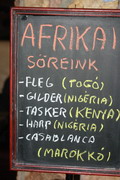 AFRIKAI
SÖREINK
-FLEG (TOGÓ)
-GILDER (NIGÉRIA)
-TASKER (KENYA)
-HARP (NIGÉRIA)
-CASABLANCA
(MAROKKÓ)